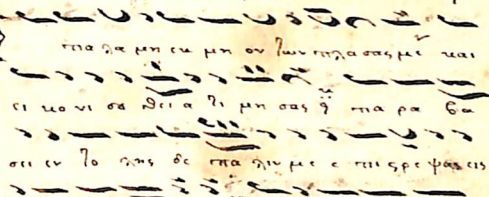 πα λα μη εκ μη ον των πλα σας με και
ει κο νι σα θει α τι μη σας ο πα ρα βα
σει εν το λης δε πα λιν με ε πις ρε ψας εις